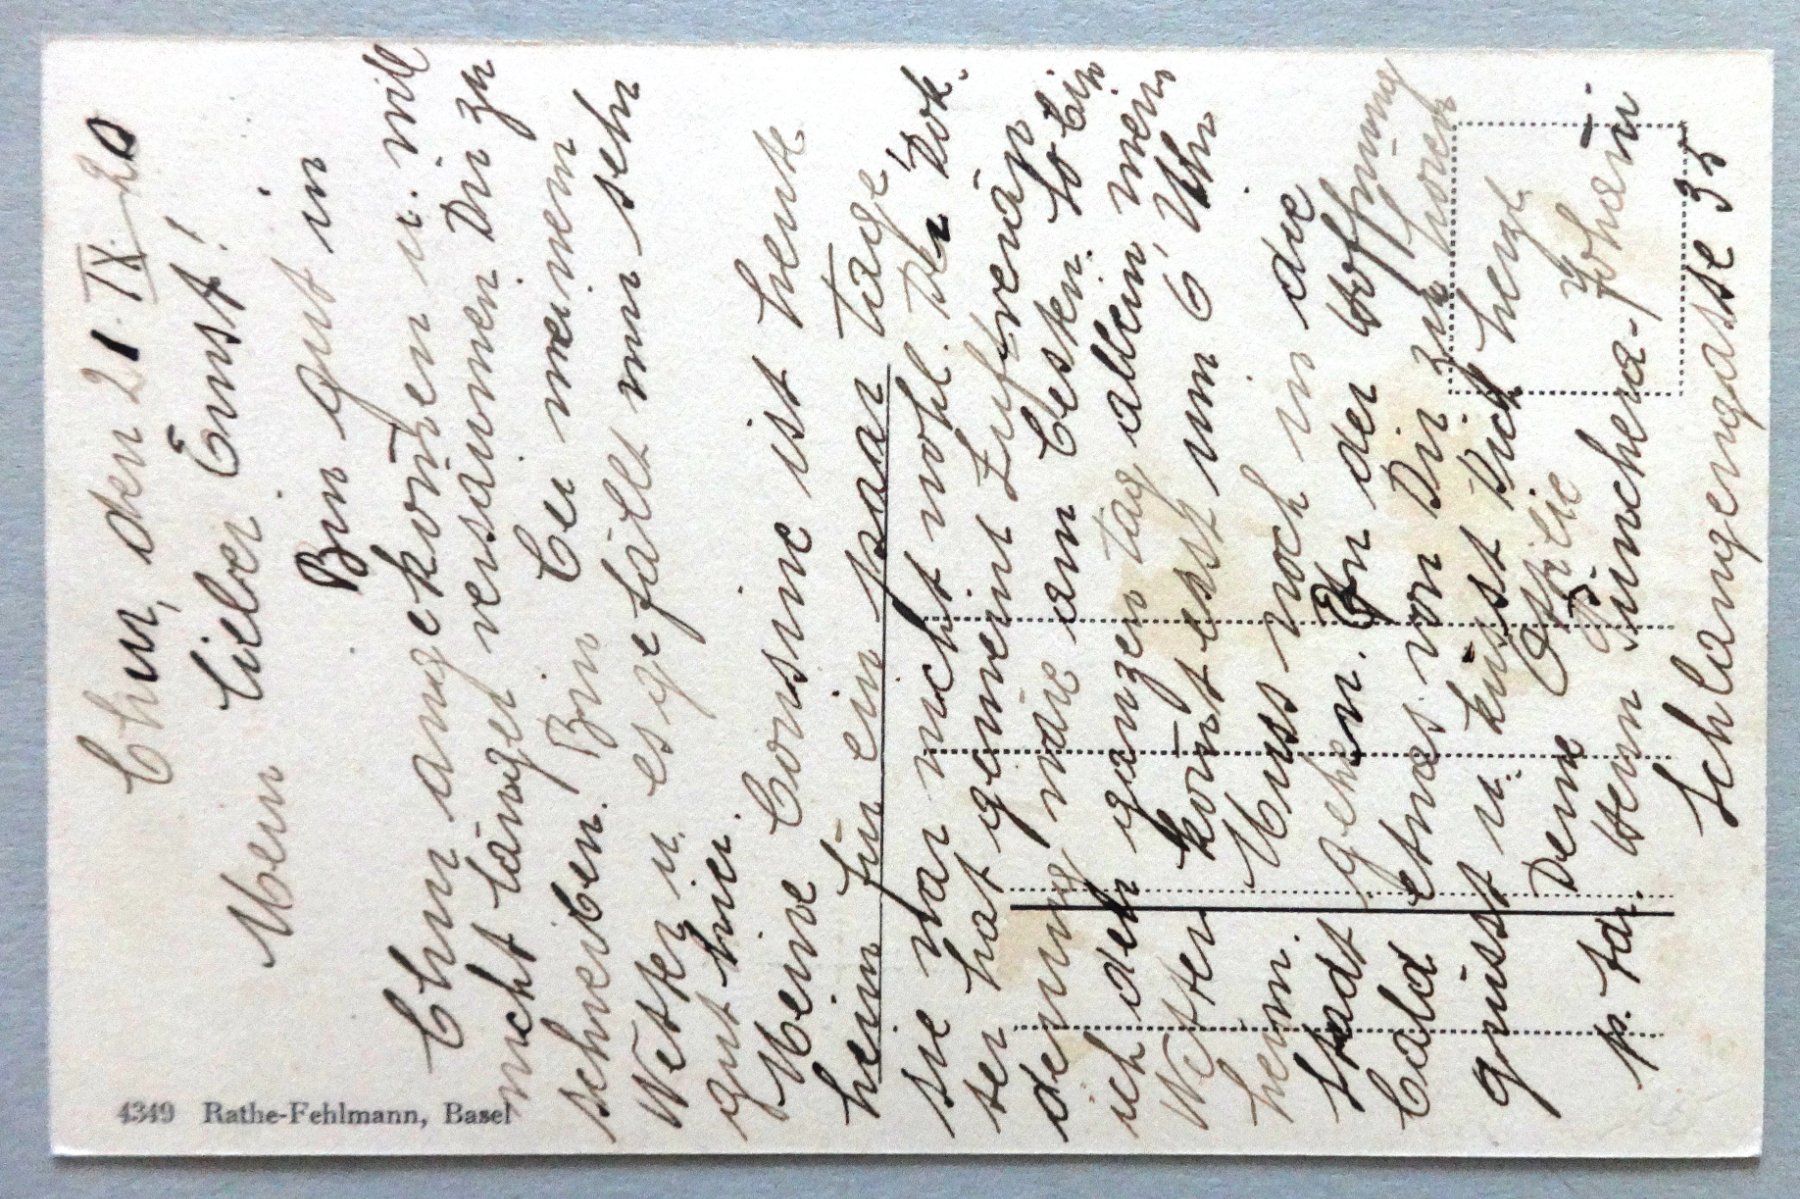 Chur, den 21. IX. 20
Mein lieber Ernst!
Bin gut in
Chur angekom̅en u. will
nicht länger versäumen Dir zu
schreiben. Bin bei meinem
Vetter u. es gefällt mir sehr
gut hier.
Meine Cousine ist heute
heim für ein paar Tage,
sie war nicht wohl. Der Dok-
ter hat gemeint Luftverän-
derung wäre am besten. So bin
ich den ganzen Tag allein, mein
Vetter kom̅t erst um 6 Uhr
heim. Muss noch in die
Stadt gehen. In der Hoffnung
bald etwas von Dir zu hören
grüsst u. küsst Dich herzl.
Deine Ottilie
p. Adr. Herrn Punchera-Johan̅i
Schlangengasse 35
4349 Rathe-Fehlmann, Basel